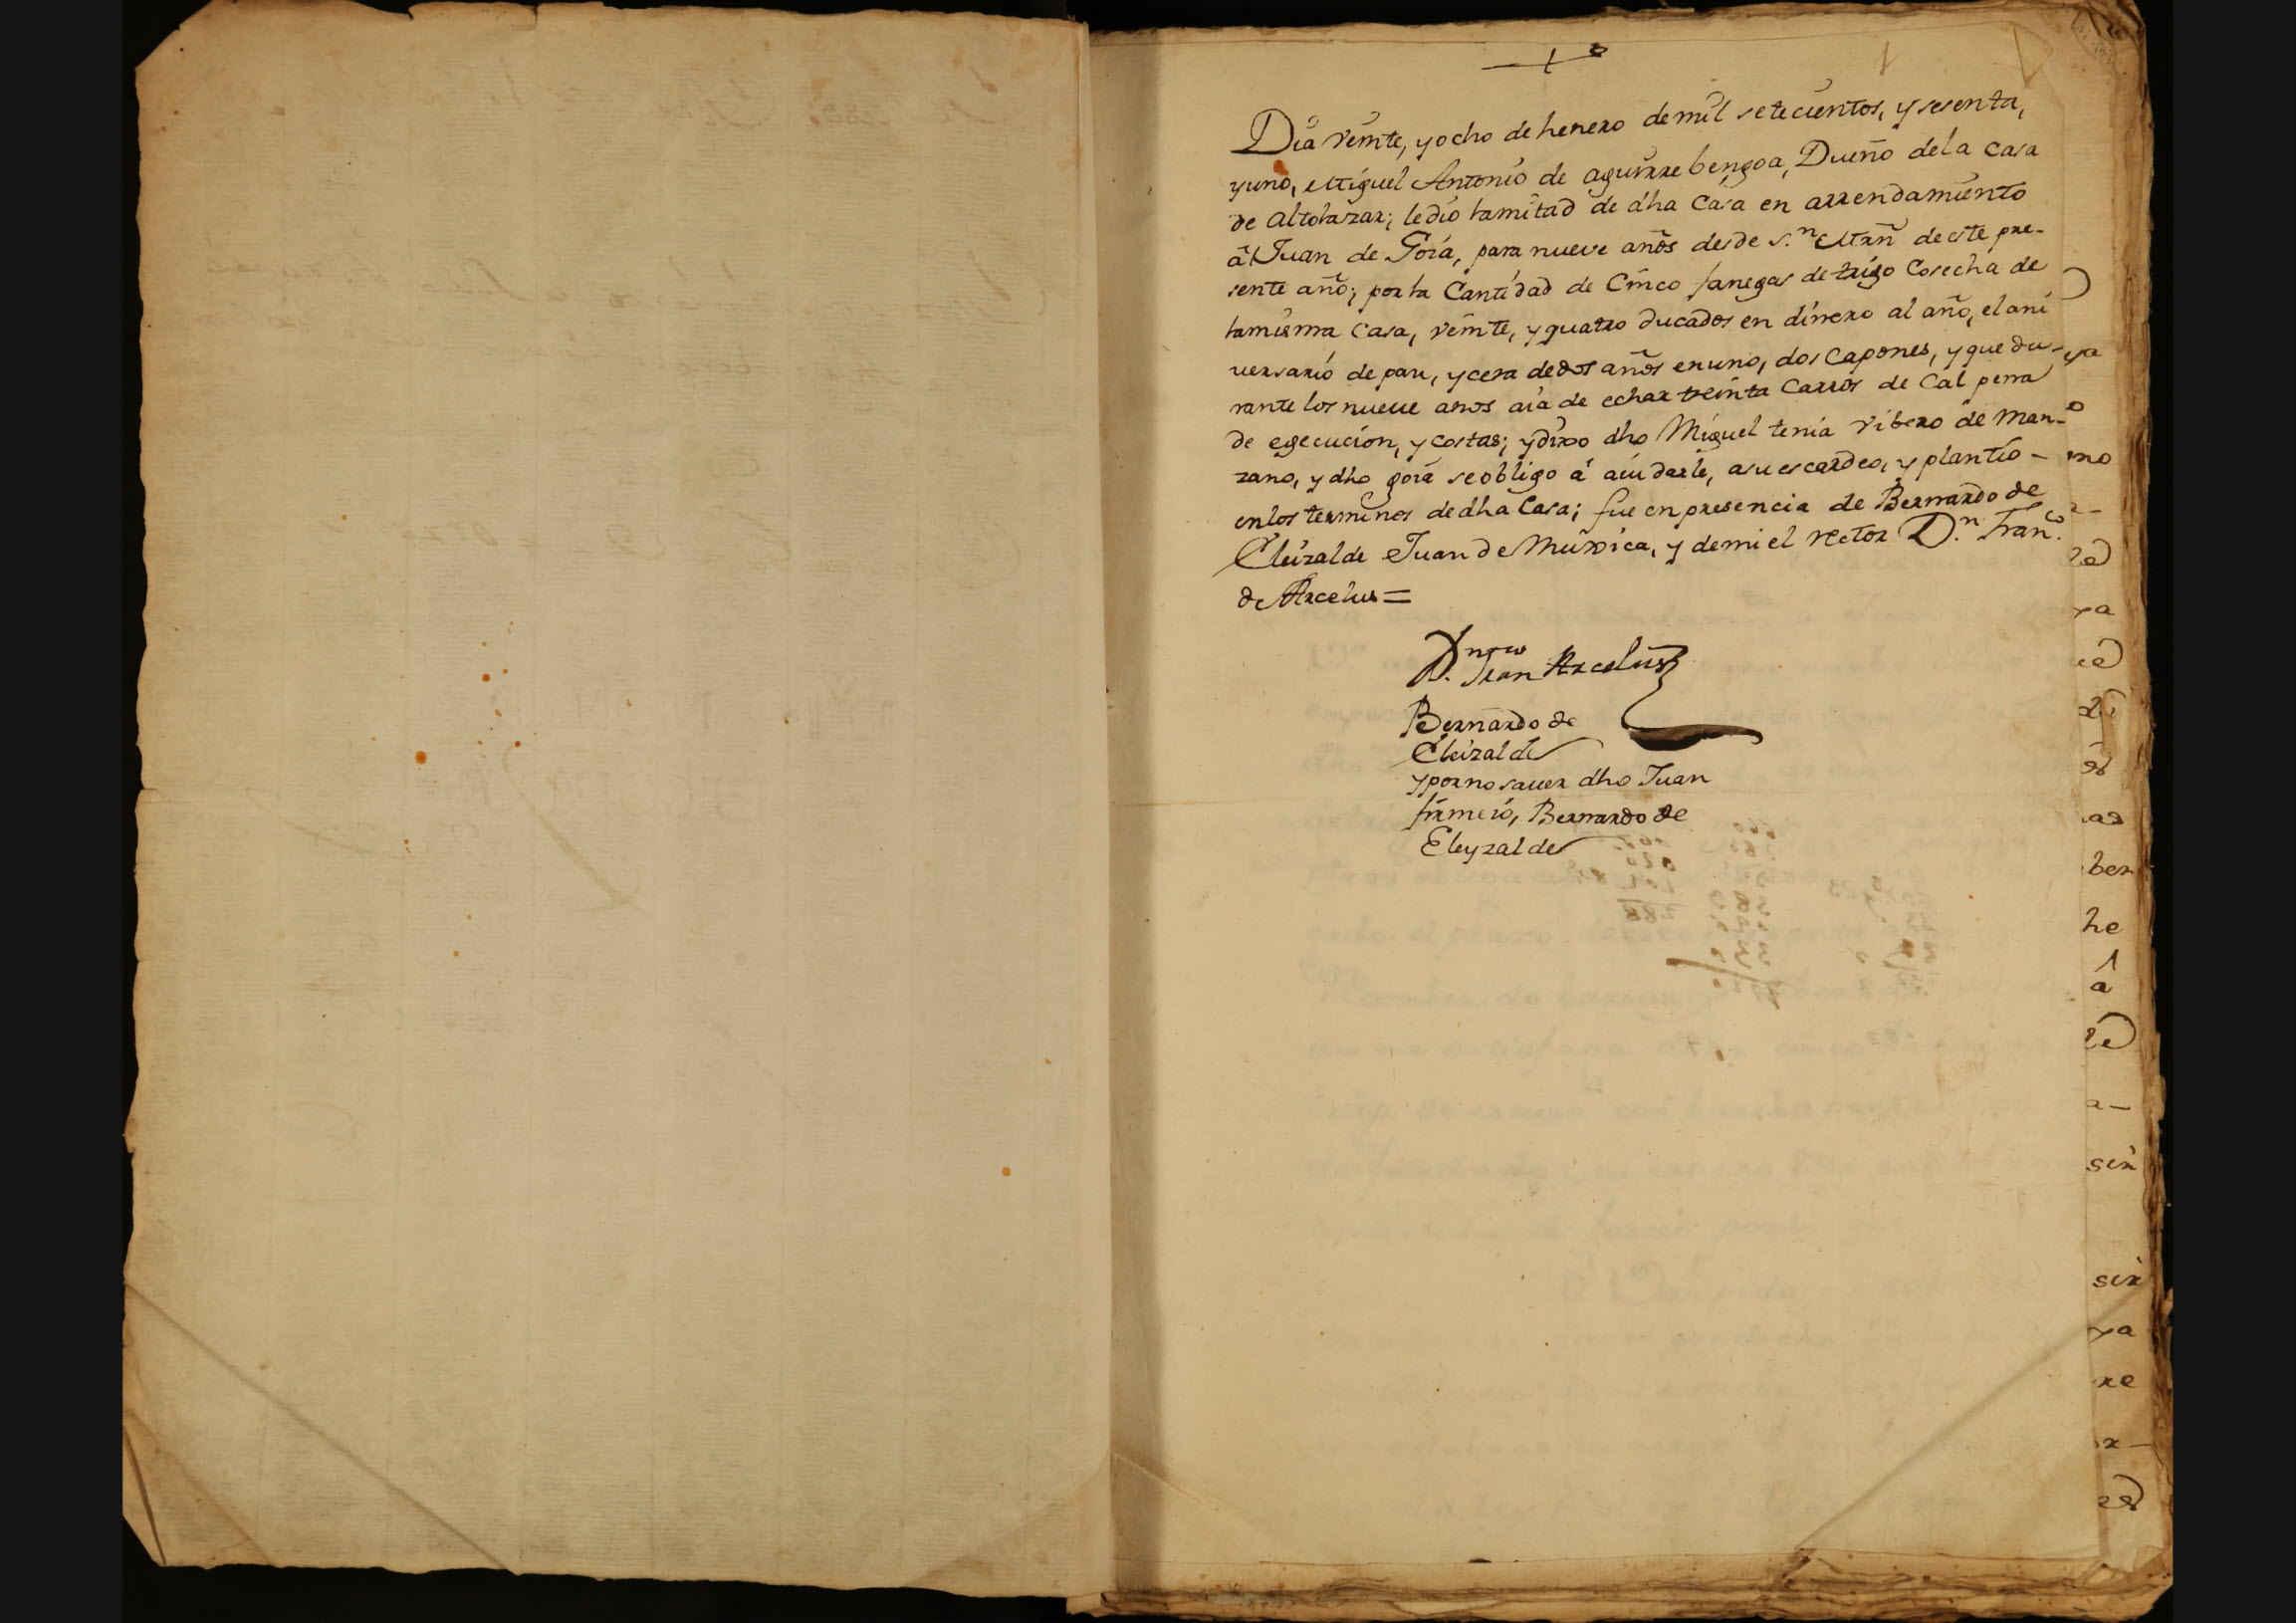 Dia veinte, y ocho de henero de mil setecientos, y sesenta,
y uno, Miguel Antonio de aguirre bengoa, Dueño dela Casa
de altolazar; ledio lamitad de dha Casa en arrendamiento
â Juan de Goia, para nueve años desde s.n Mrñ de este pre-
sente año; por la Cantidad de Cinco fanegas de trigo Cosecha de
lamisma Casa, veinte, y quatro ducados en dinero al año, el ani
uersario de pan, y cera dedos años en uno, dos Capones, y que du-
rante los nueue anos aia de echar treinta Carros de Cal pena
de egecucion, y costas; y dixo dho Miguel tenia vibero de Man-
zano, y dho goia se obligo á aiudarle, asu escardeo, y plantio -
enlos terminos dedha Casa; fue en presencia de Bernardo de
Eleizalde Juan de Muxica, y demi el rector D.n Fran.co
de Arcelus =
D.n Fran.co Arcelus
Bernardo de
Eleizalde
y por no sauer dho Juan
firme io, Bernardo de
Eleyzalde
ya
o
mo
ra
he
a
a-
sir
sir
ya
re